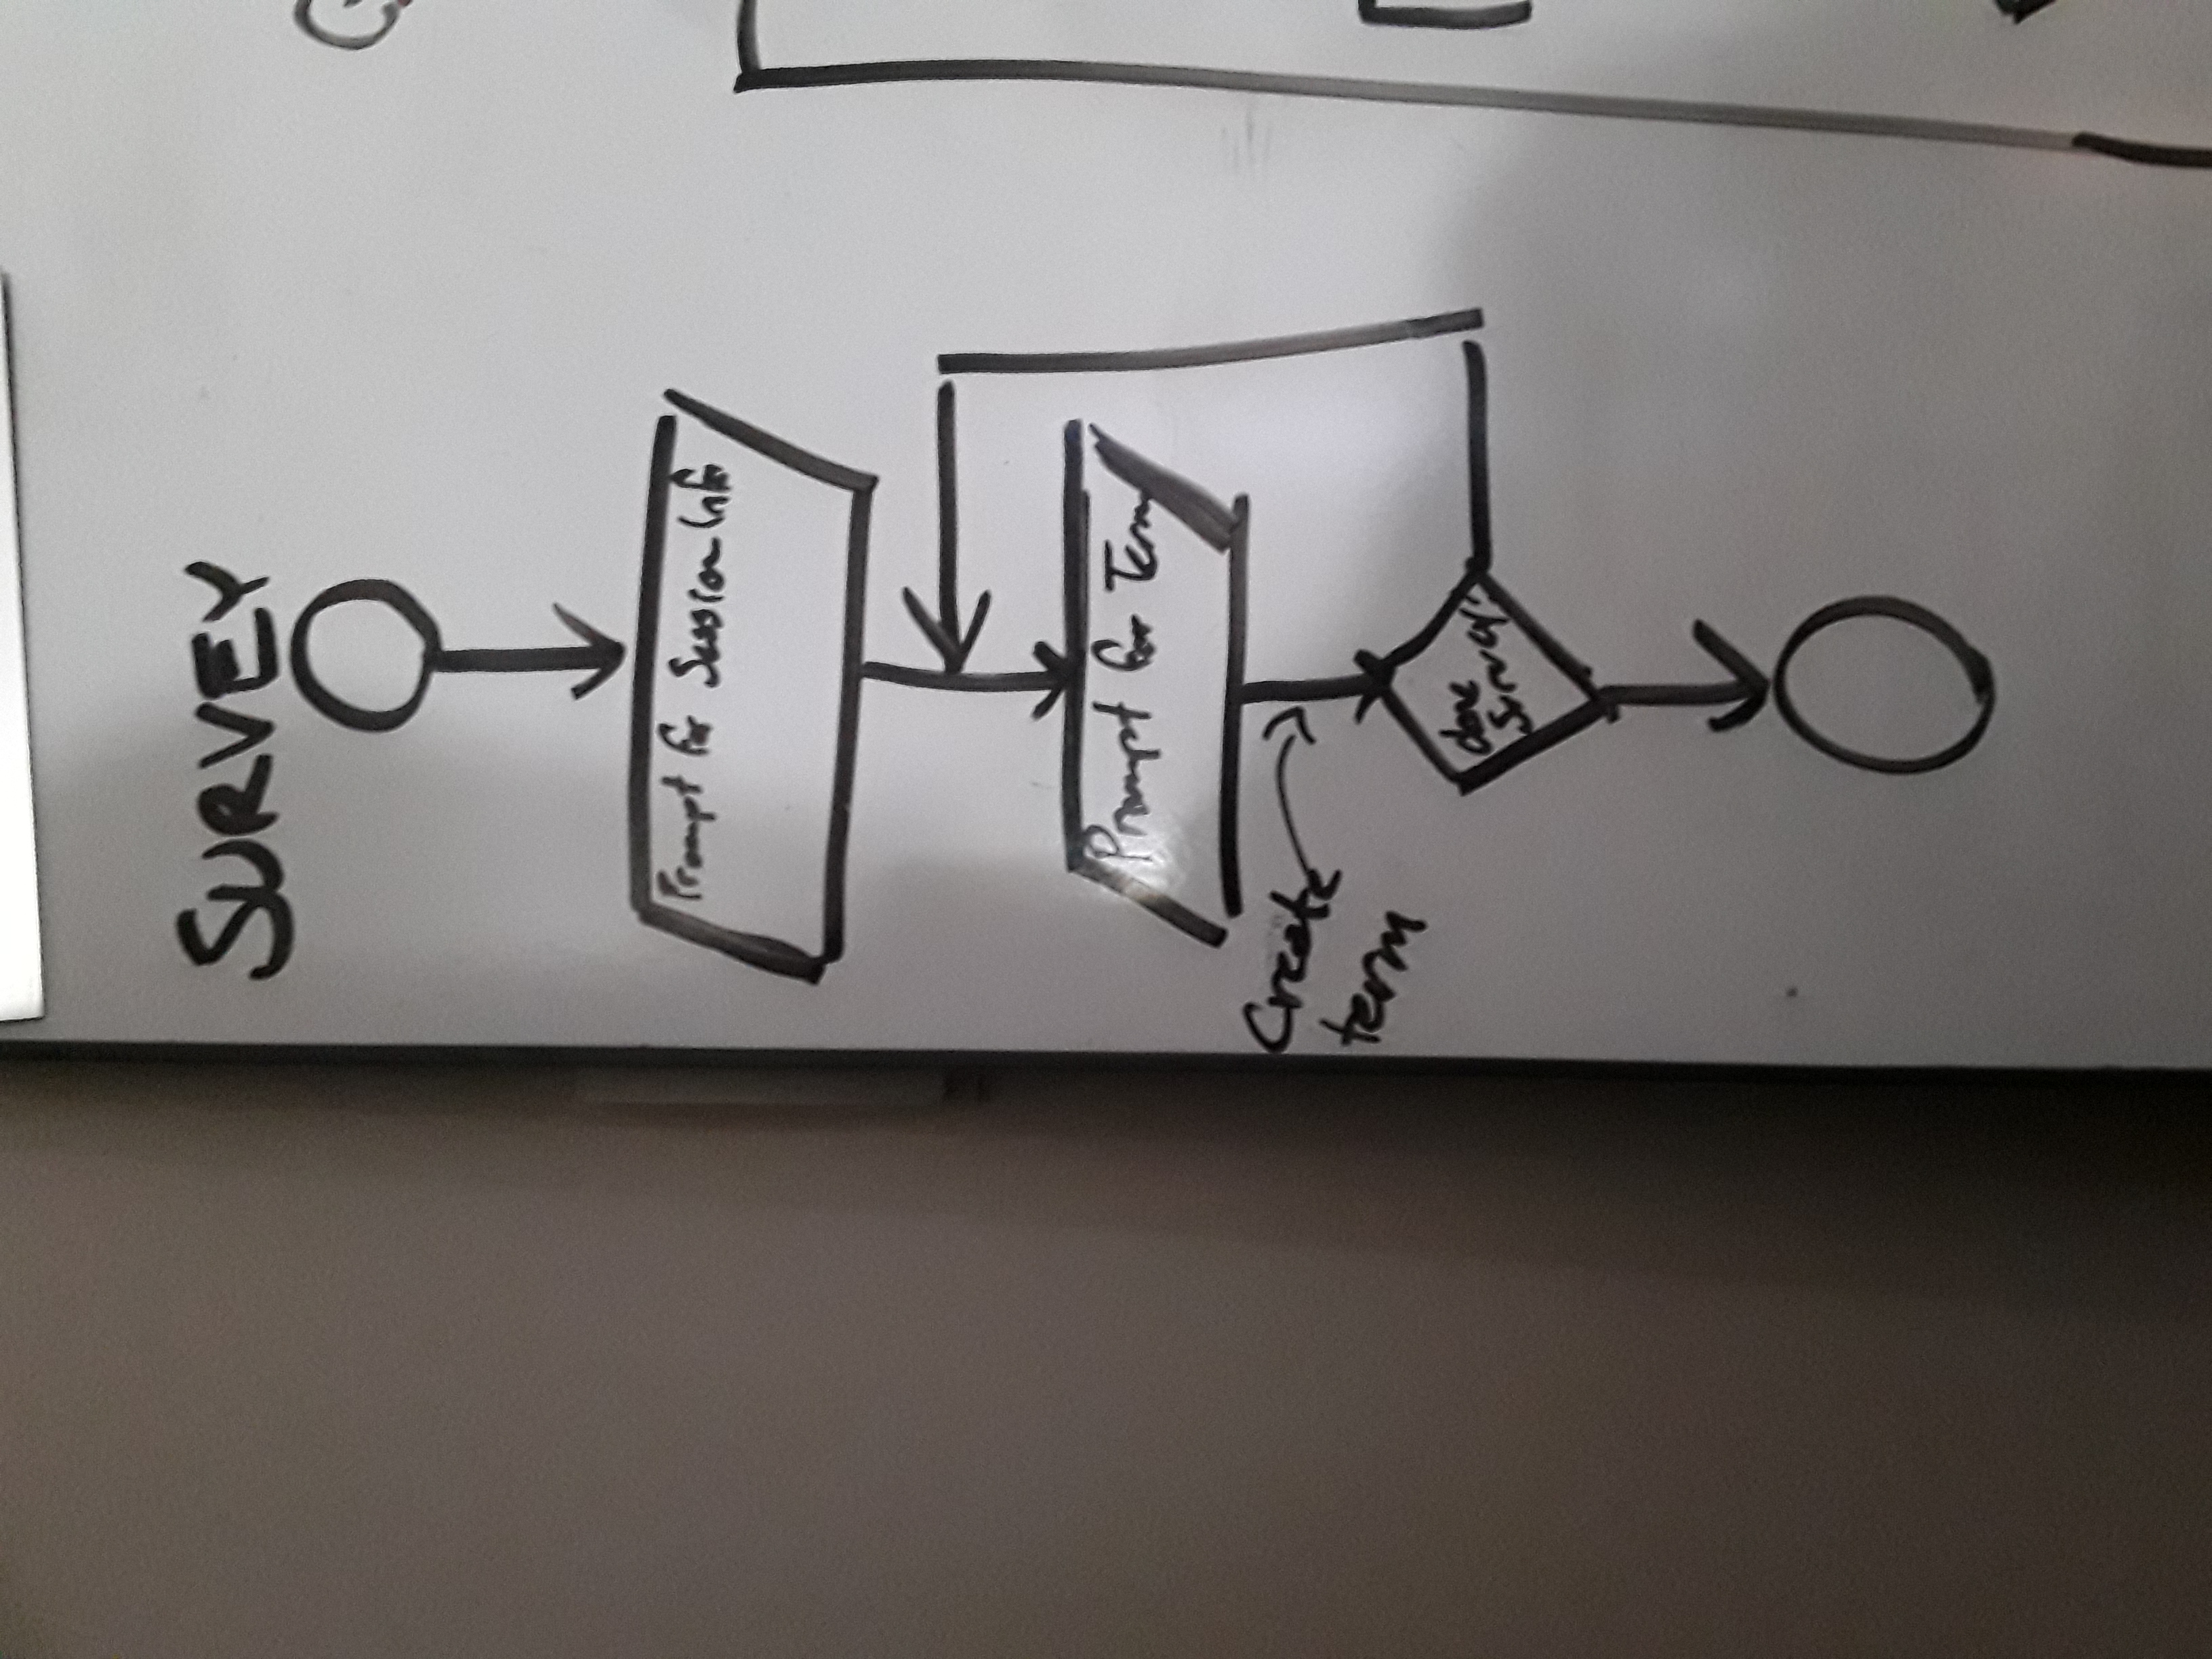 SURVEY
Prompt for Session Info
Prompt for Term
Create
term
done
Survey?